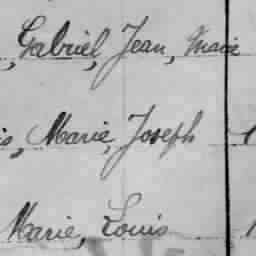 , Gabriel, Jean, Marie
s, Marie, Joseph
Marie, Louis